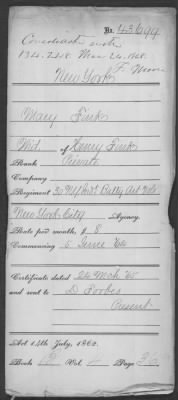 No. 43699
Consolidated with
134.218. Mar 24. '65.
F. Moore
New York
Mary Fink
Wid. of Henry Fink
Rank Private
Company
Regiment 30 N.Y. Indt. Batty Art Vols.
New York City Agency.
Rate per month, $ 8
Commencing 5 June '64
Certificate dated 24 Mch '65
and sent to D. Forbes
Present
Act 14th July, 1862.
Book Vol. Page